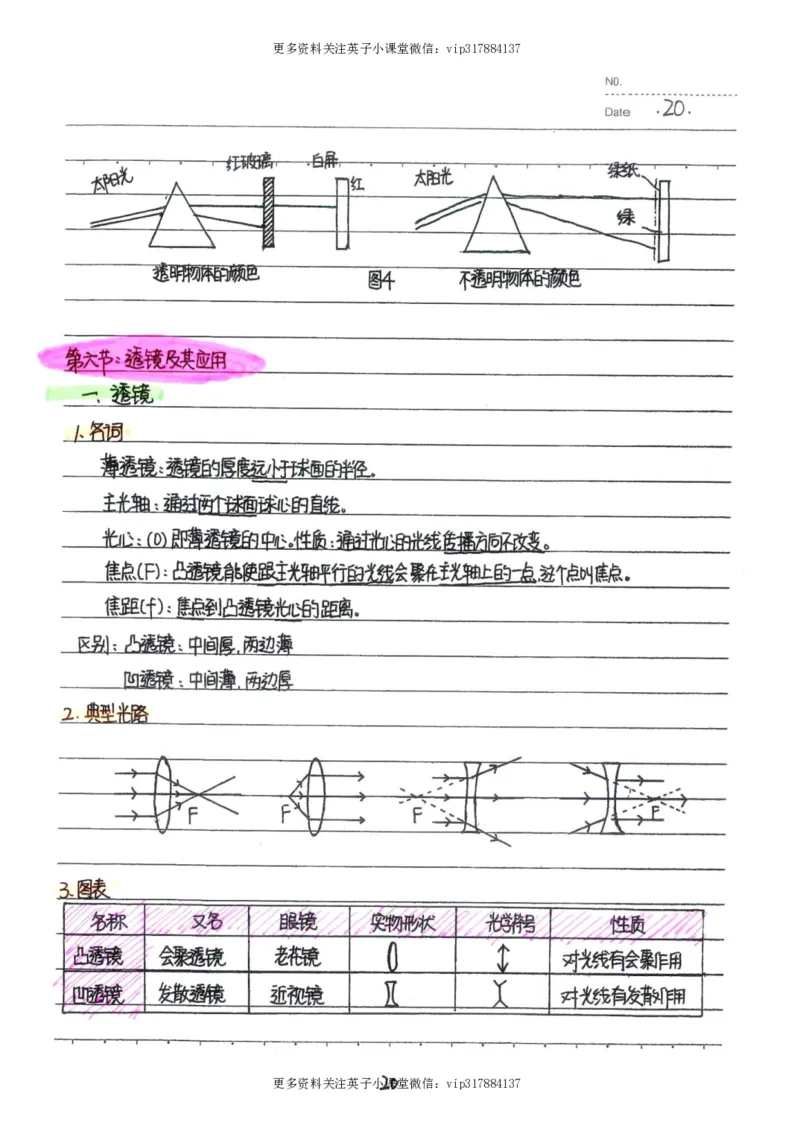 更多资料关注英子小课堂微信：vip317884137
NO.
Date .20.
太阳光 红玻璃 白屏 红 太阳光 绿纸 绿
透明物体的颜色 图4 不透明物体的颜色
第六节：透镜及其应用
一、透镜
1.名词
薄透镜：透镜的厚度远小于球面的半径。
主光轴：通过两个球面球心的直线。
光心：(O)即薄透镜的中心。性质：通过光心的光线传播方向不改变。
焦点(F)：凸透镜能使跟主光轴平行的光线会聚在主光轴上的一点,这个点叫焦点。
焦距(f)：焦点到凸透镜光心的距离。
区别：凸透镜：中间厚,两边薄
凹透镜：中间薄,两边厚
2.典型光路
F F F F
3.图表
名称 又名 眼镜 实物形状 光学符号 性质
凸透镜 会聚透镜 老花镜 对光线有会聚作用
凹透镜 发散透镜 近视镜 对光线有发散作用
20
更多资料关注英子小课堂微信：vip317884137